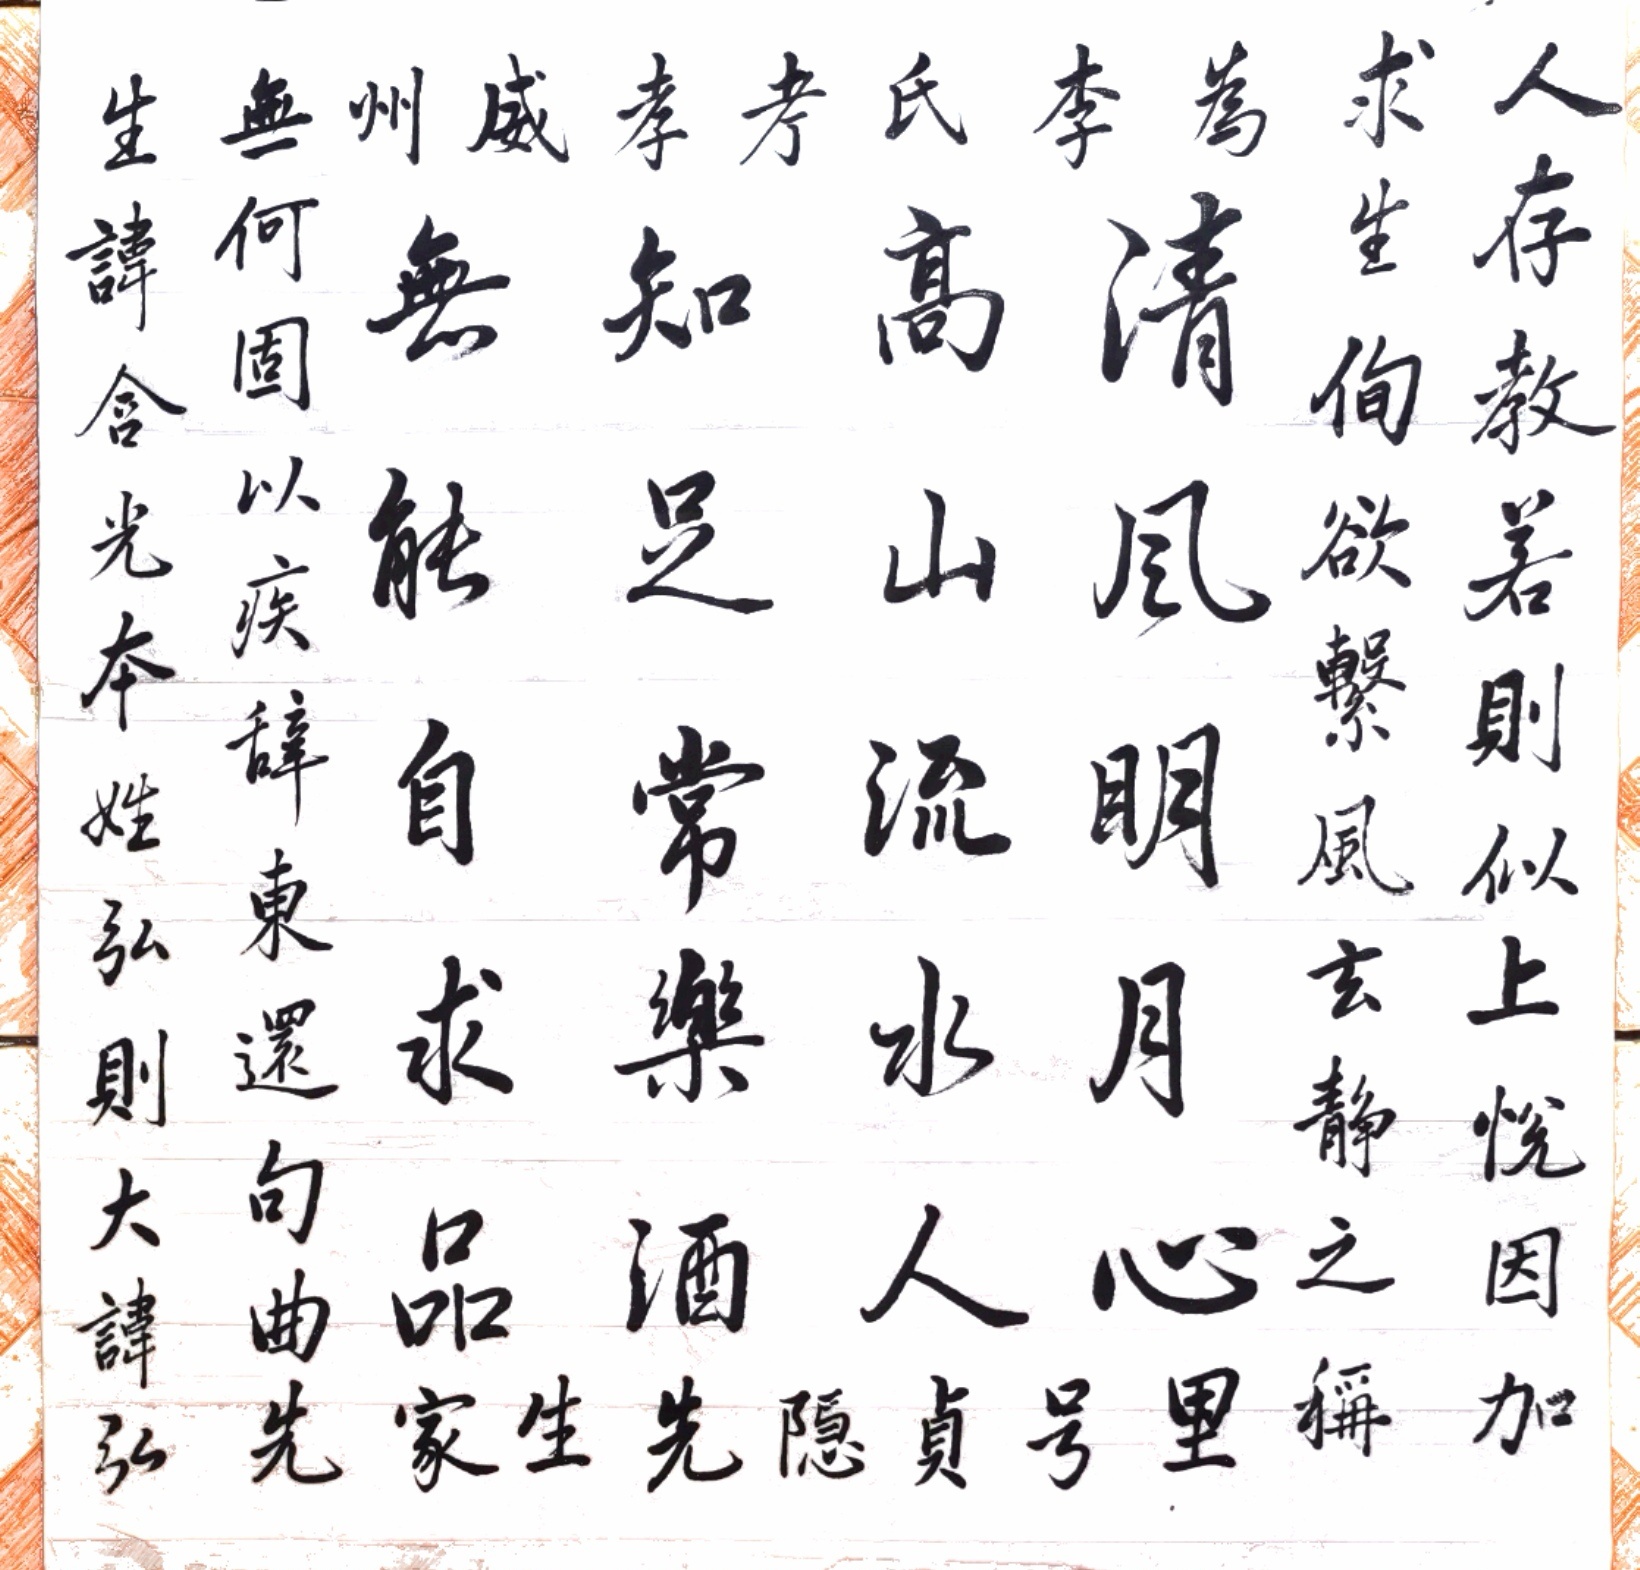 人存教若則似上悦因加
求生侚欲繫風玄静之稱
為李氏考孝威州
清風明月心
高山流水人
知足常樂酒
無能自求品
里号貞隐先生家
無何固以疾辞東還句曲先
生諱含光本姓弘則大諱弘